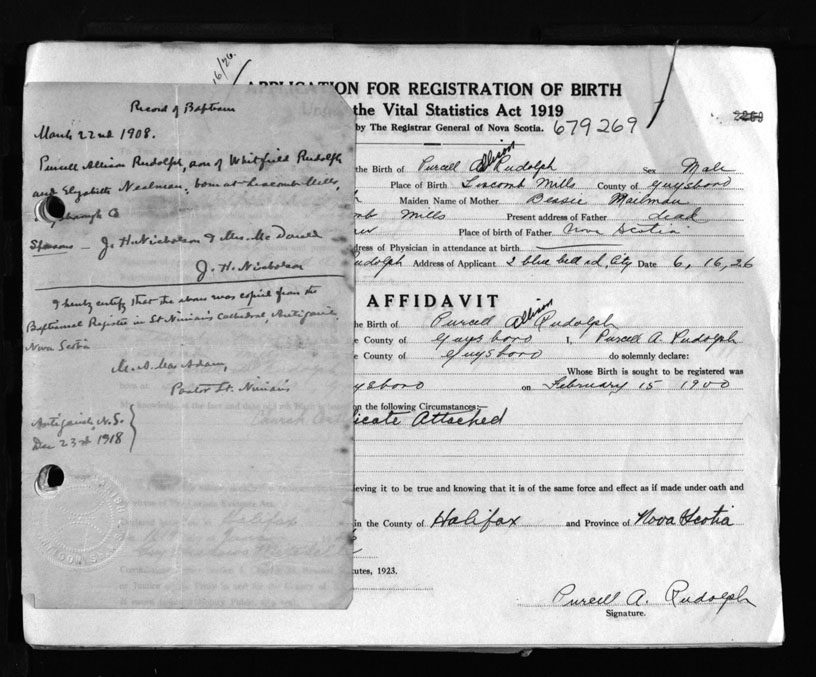 16/26.
Record of Baptism
March 22nd 1908.
Purcell Allison Rudolph, son of Whitfield Rudolph
and Elizabeth Nealman, born at Liscomb Mills,
Sponsors — J. H. Nicholson & Mrs. McDonald
J. H. Nicholson
I hereby certify that the above was copied from the
Baptismal Register in St Ninian's Cathedral Antigonish,
Nova Scotia
M. A. MacAdam,
Pastor St. Ninian's
Antigonish, N.S.
Dec 23rd 1918
APPLICATION FOR REGISTRATION OF BIRTH
the Vital Statistics Act 1919
by The Registrar General of Nova Scotia. 679269
the Birth of Purcell A Allison Rudolph Sex Male
Place of Birth Liscomb Mills County of Guysboro
Maiden Name of Mother Bessie Mailman
Mills Present address of Father dead
Place of birth of Father Nova Scotia
dress of Physician in attendance at birth
Rudolph Address of Applicant 2 blue bell rd, City Date 6, 16, 26
AFFIDAVIT
the Birth of Purcell Allison Rudolph
County of Guysboro I, Purcell A. Rudolph
County of Guysboro do solemnly declare:
Whose Birth is sought to be registered was
ysboro on February 15 1900
on the following Circumstances:—
icate Attached
ieving it to be true and knowing that it is of the same force and effect as if made under oath and
in the County of Halifax and Province of Nova Scotia
tutes, 1923.
Purcell A. Rudolph
Signature.